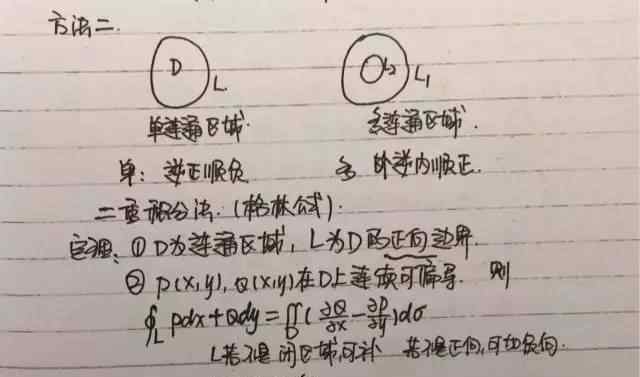 方法二.
D L L₂ L₁
单连通区域. 多连通区域.
单: 逆正顺负 多 外逆内顺正.
二重积分法. (格林公式).
定理: ① D为连通区域, L为D的正向边界.
② P(x,y), Q(x,y)在D上连续可偏导. 则
∮_L Pdx+Qdy=∬_D(∂Q/∂x-∂P/∂y)dσ
L若不是闭区域,可补 若不是正向,可加负向.